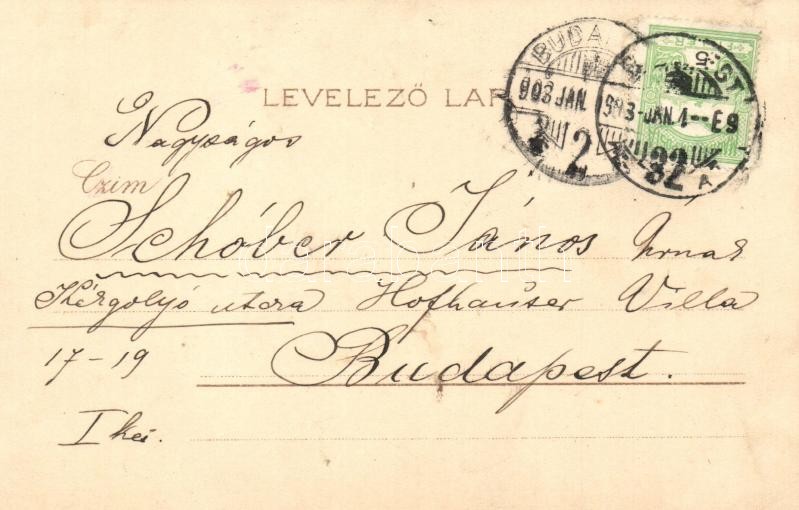 LEVELEZŐ LAP
BUDA
903 JAN.
2
ST
903-JAN.1--E9
32
A
5
Nagyságos
Czim
Schóber János Úrnak
utcza Hofhauser Villa
17-19
Budapest.
I